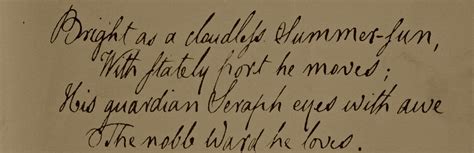 Bright as a cloudless Summer-sun,
With stately port he moves;
His guardian Seraph eyes with awe
The noble Ward he loves.